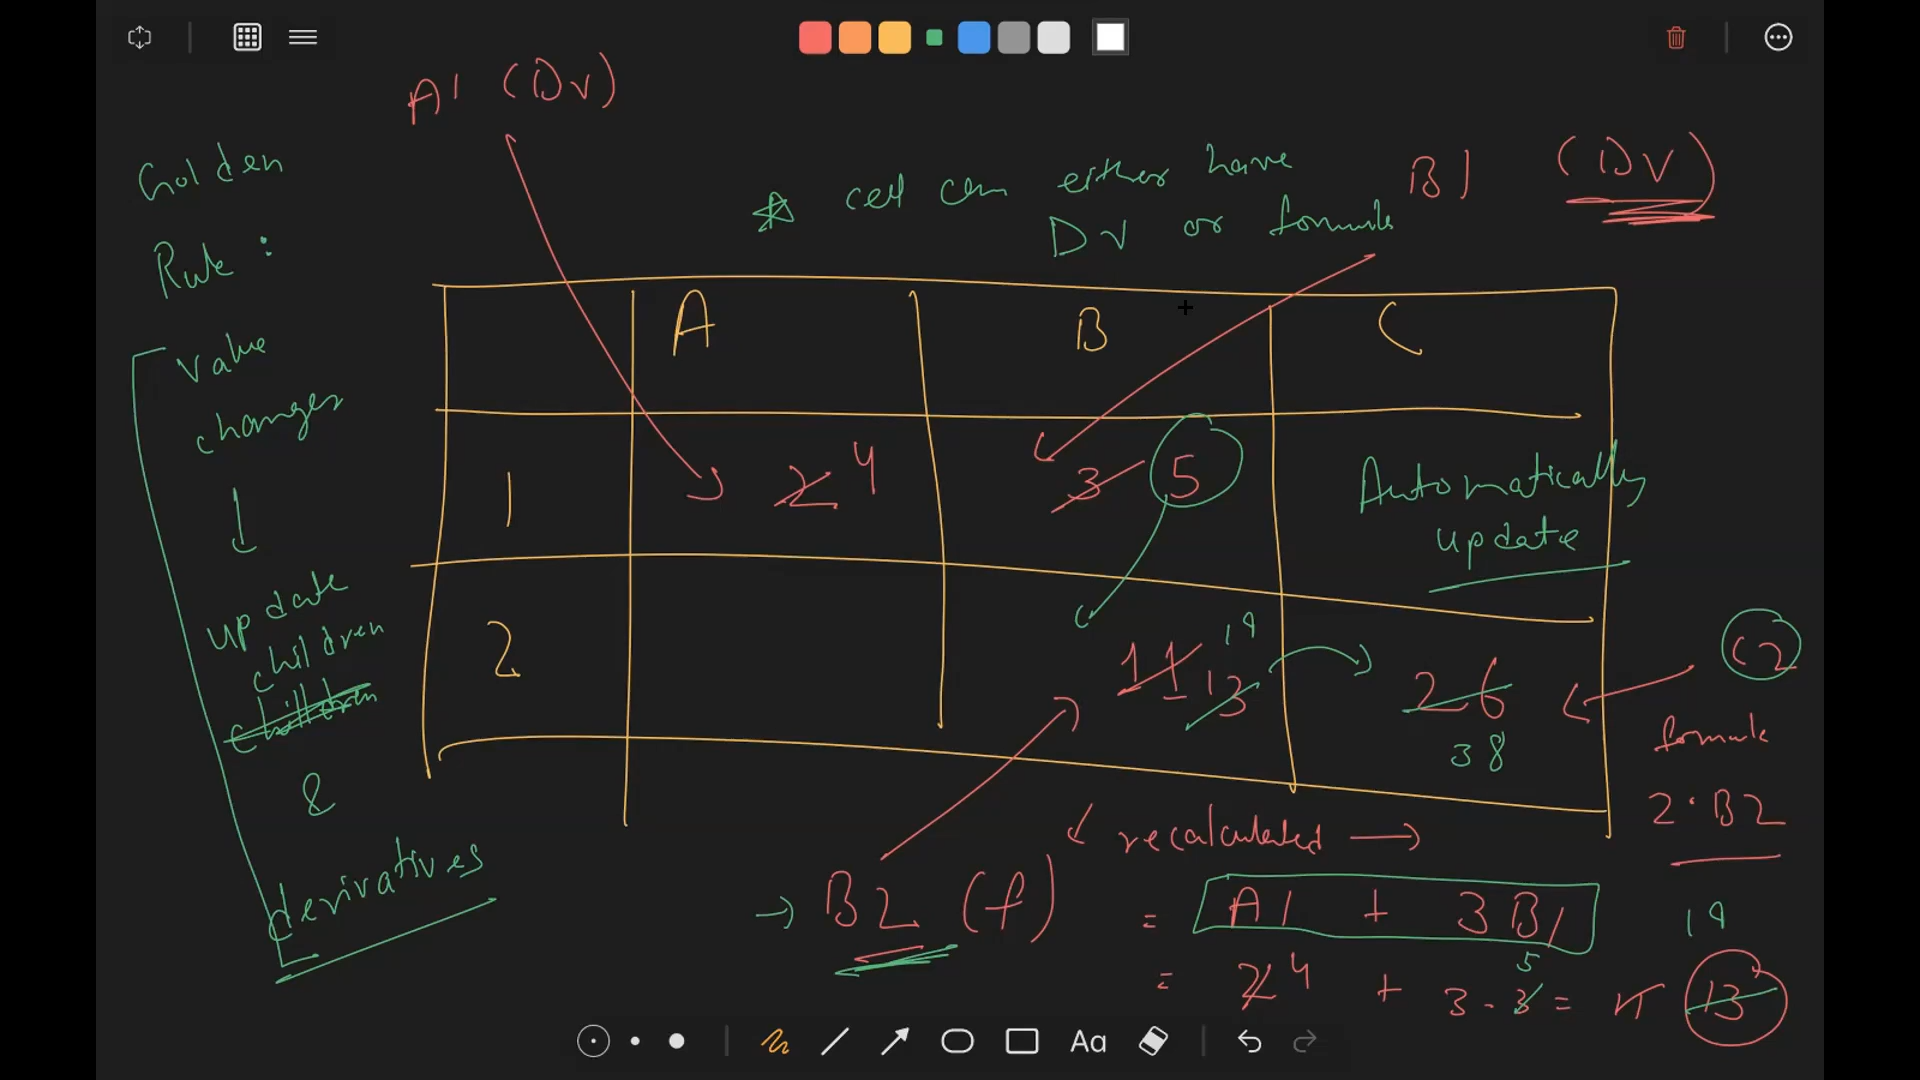 A1 (Dv)
Golden
Rule :
value
changes
update
children
&
derivatives
* cell can either have
Dv or formula
B1 (DV)
A B C
1 2 4 3 5 Automatically
update
2 11 13 19 26
38
C2
formula
2·B2
← recalculated →
→ B2 (f) = A1 + 3B1
19
= 2 4 + 3 · 3 5 = 11 13
Aa